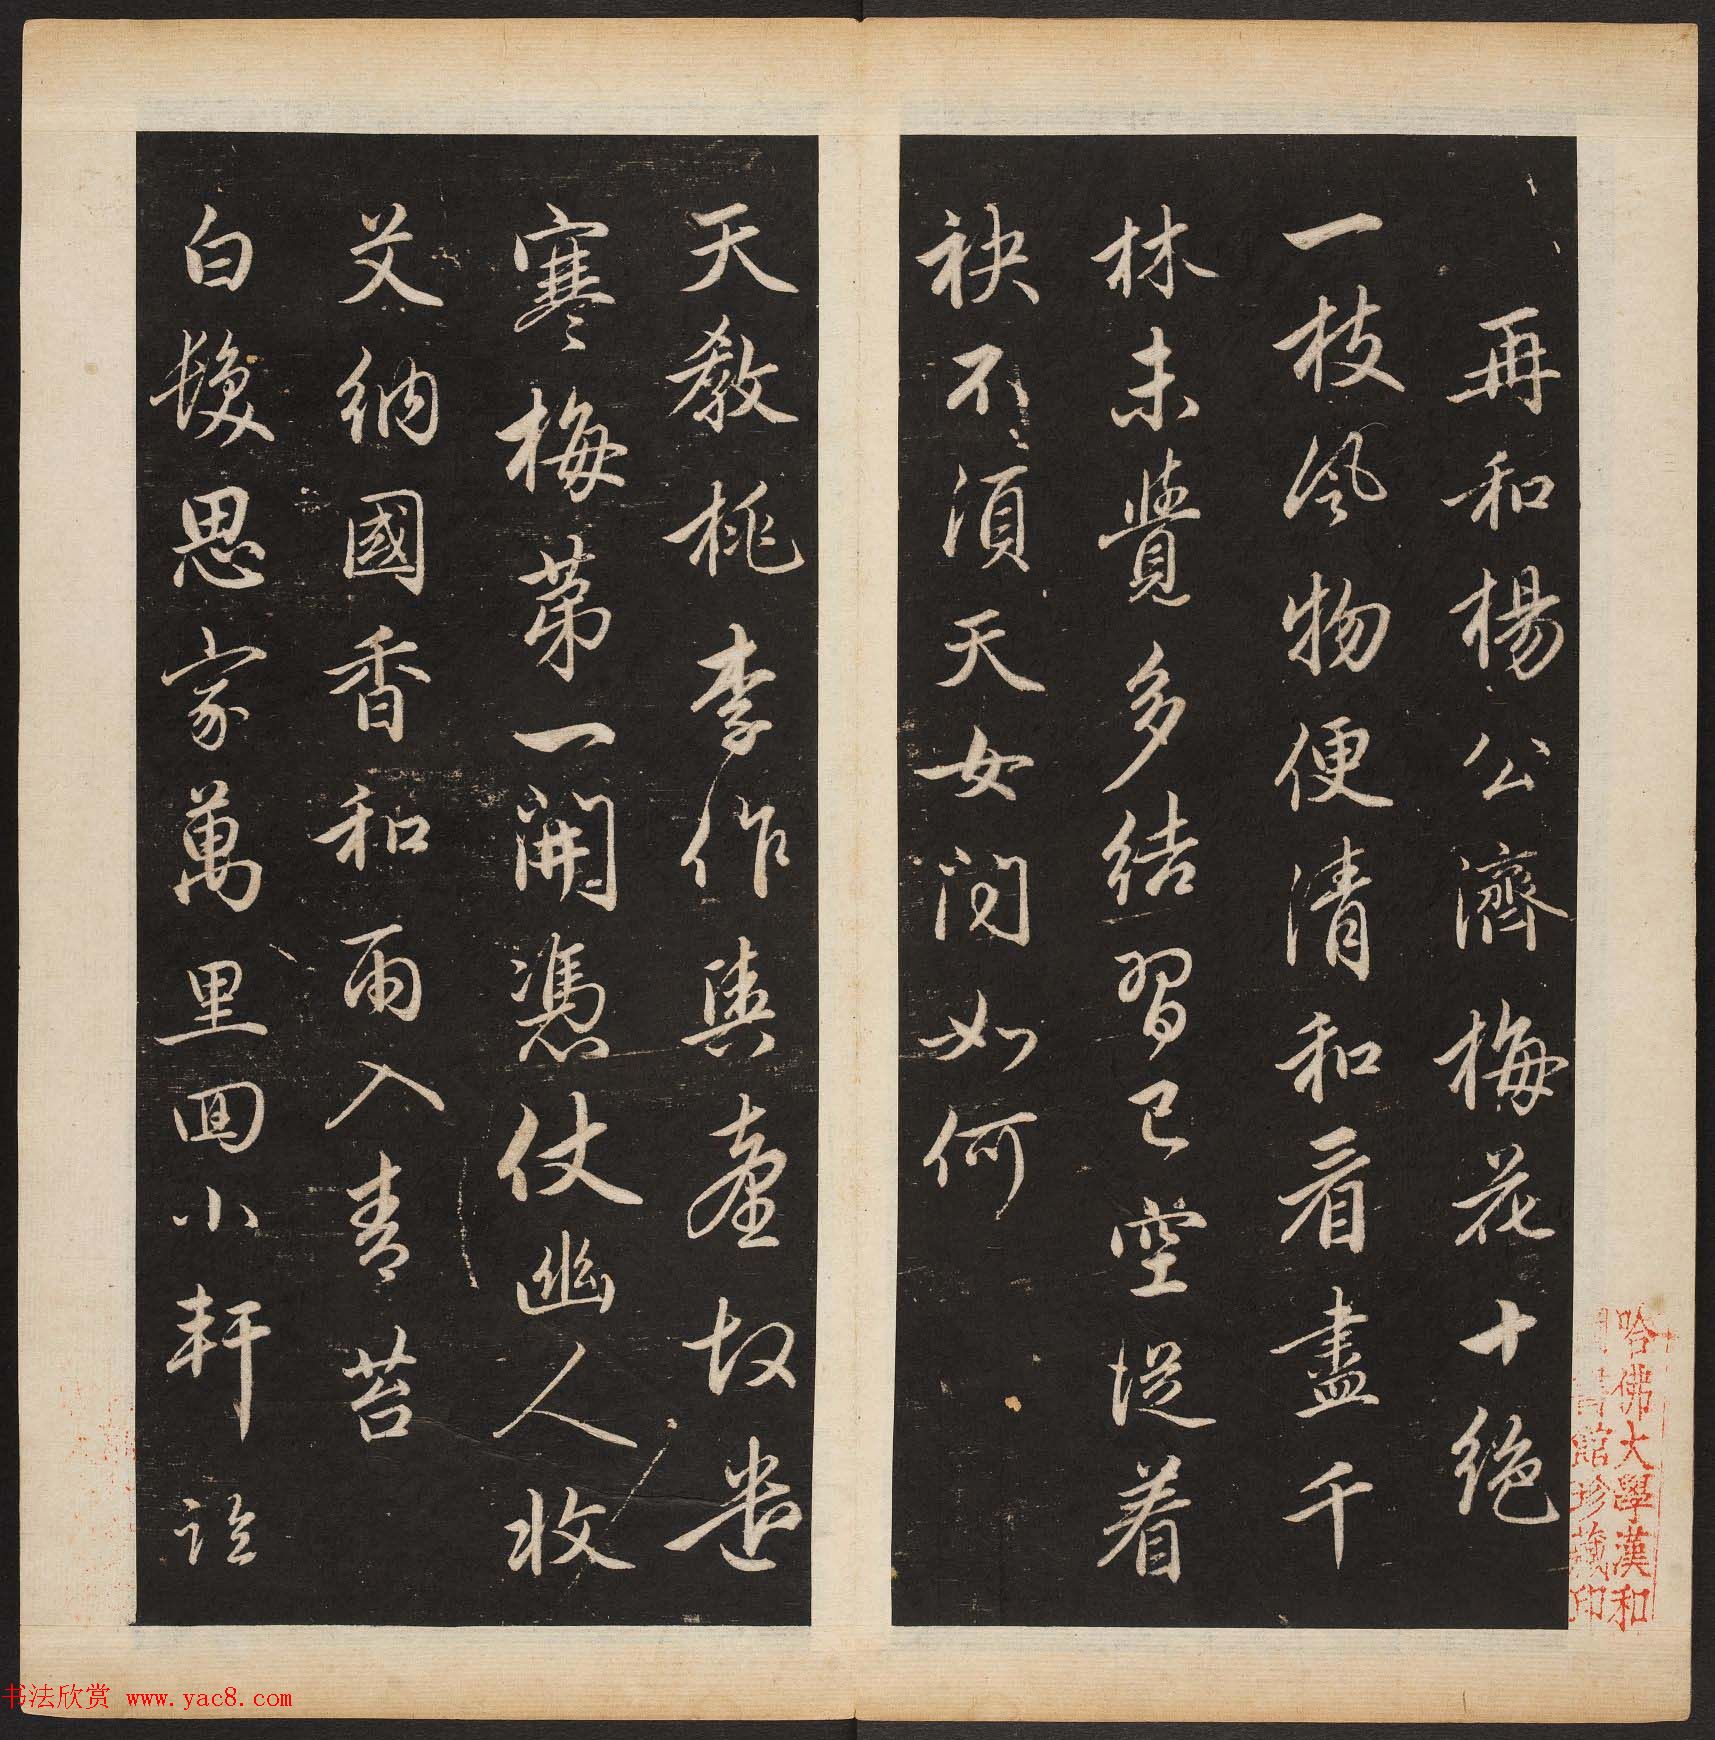 再和楊公濟梅花十絶
一枝風物便清和看盡千
林未覺多結習已空從着
袂不須天女問如何
天教桃李作輿臺故遣
寒梅第一開憑仗幽人收
艾納國香和雨入青苔
白髮思家萬里回小軒
哈佛大學漢和
圖書館珍藏印
书法欣赏 www.yac8.com